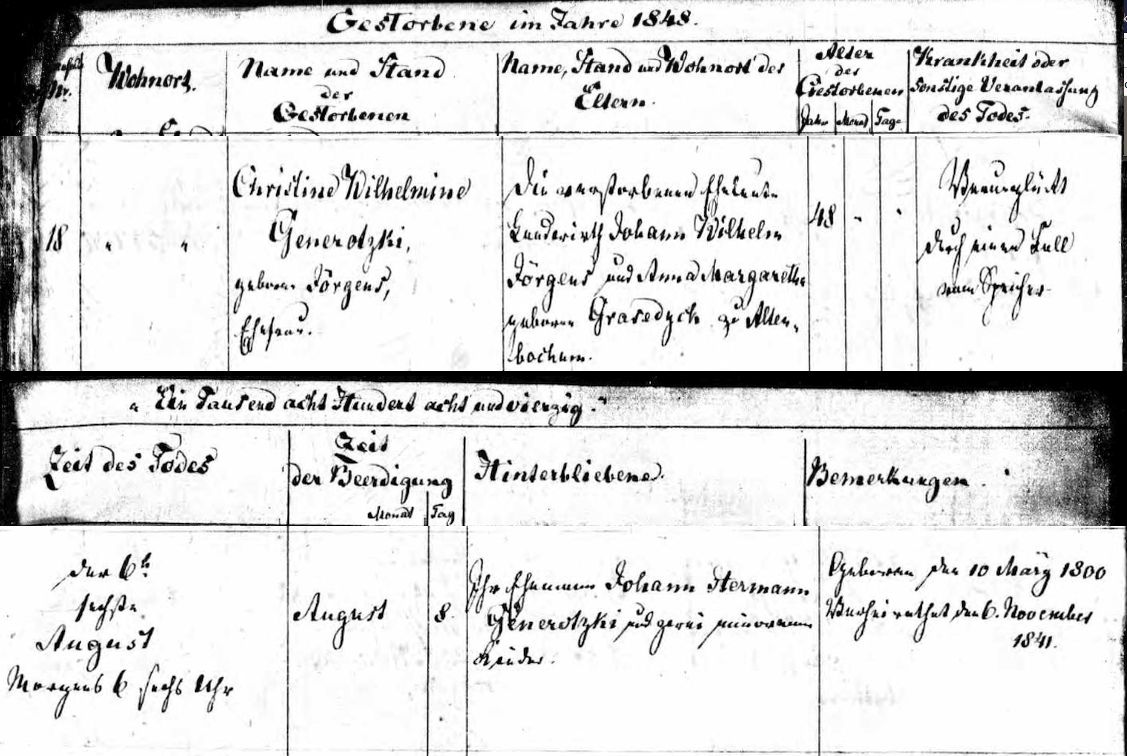 Gestorbene im Jahre 1848.
Nr.
Wohnort.
Name und Stand
der
Gestorbenen
Name, Stand und Wohnort der
Eltern.
Alter
der
Gestorbenen
Jahr Monat Tage
Krankheit oder
sonstige Veranlassung
des Todes.
18 " "
Christine Wilhelmine
Generotzki,
geborne Jörgens,
Ehefrau.
Die verstorbenen Eheleute
Landwirth Johann Wilhelm
Jörgens und Anna Margarethe
geborne Grasedyck zu Alten-
bochum.
48 " "
Verunglückt
durch einen Fall
vom Speicher
Ein Tausend acht Hundert acht und vierzig.
Zeit des Todes
Zeit
der Beerdigung
Monat Tag
Hinterbliebene.
Bemerkungen.
den 6t
sechste
August
Morgens 6 sechs Uhr
August 8.
Ihr Ehemann Johann Hermann
Generotzki und zwei minorenne
Kinder.
Geboren den 10 März 1800
Verheirathet den 6. November
1841.